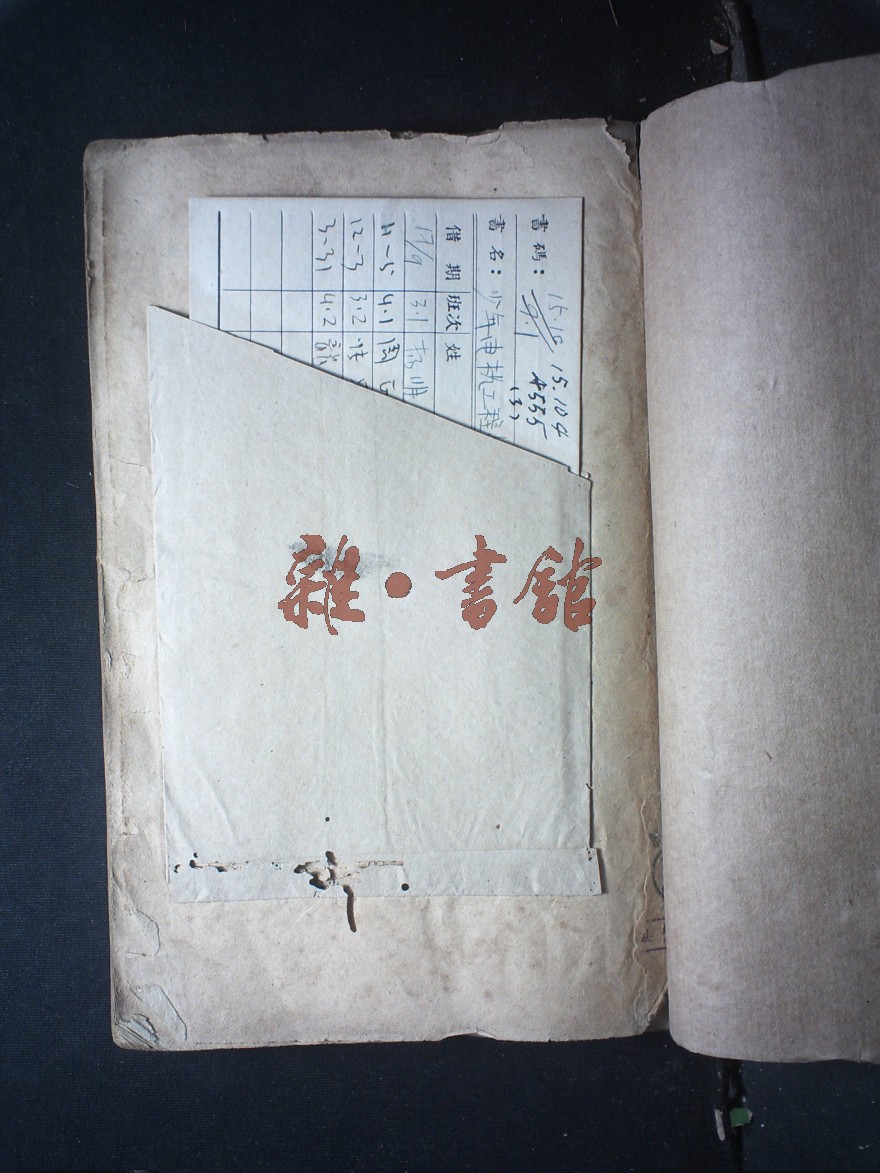 書碼: 15.10 15.104
9.1 A555
(3)
書名: 少年电机工程
借期 班次 姓
17/9 3.1
11-5 4.1 周
12-3 3.2
3-31 4.2
雜·書館